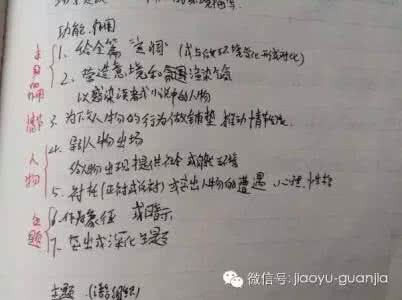 功能、作用
1. 给全篇“定调”(或与后文环境变化形成对比)
2. 营造意境和氛围渲染气氛
以感染读者或小说中的人物
3. 为下文人物的行为做铺垫 推动情节发展
4. 引人物出场
给人物出现提供社会或自然环境
5. 衬托(正衬或反衬)或突出人物的遭遇、心理、性格
6. 作为象征 或暗示
7. 突出或深化主题
作用
情节
人物
主题
主题
微信号: jiaoyu-guanjia